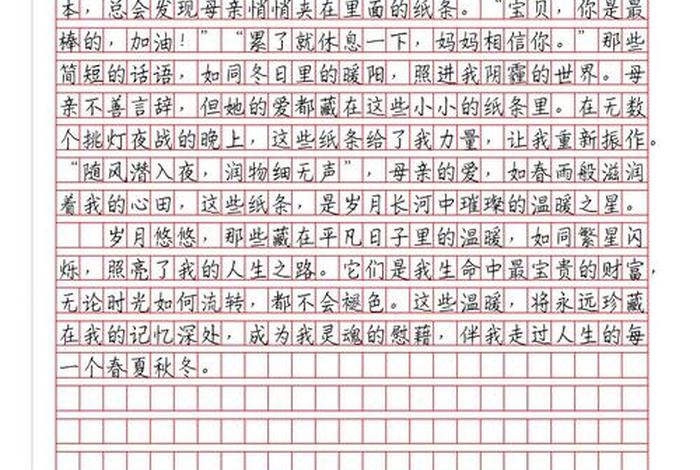 本，总会发现母亲悄悄夹在里面的纸条。“宝贝，你是最
棒的，加油！”“累了就休息一下，妈妈相信你。”那些
简短的话语，如同冬日里的暖阳，照进我阴霾的世界。母
亲不善言辞，但她的爱都藏在这些小小的纸条里。在无数
个挑灯夜战的晚上，这些纸条给了我力量，让我重新振作。
“随风潜入夜，润物细无声”，母亲的爱，如春雨般滋润
着我的心田，这些纸条，是岁月长河中璀璨的温暖之星。
岁月悠悠，那些藏在平凡日子里的温暖，如同繁星闪
烁，照亮了我的人生之路。它们是我生命中最宝贵的财富，
无论时光如何流转，都不会褪色。这些温暖，将永远珍藏
在我的记忆深处，成为我灵魂的慰藉，伴我走过人生的每
一个春夏秋冬。